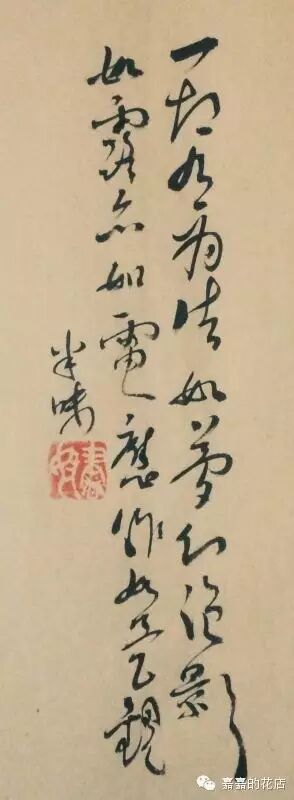 一切有為法如夢幻泡影
如露亦如電應作如是觀
嘉嘉的花店